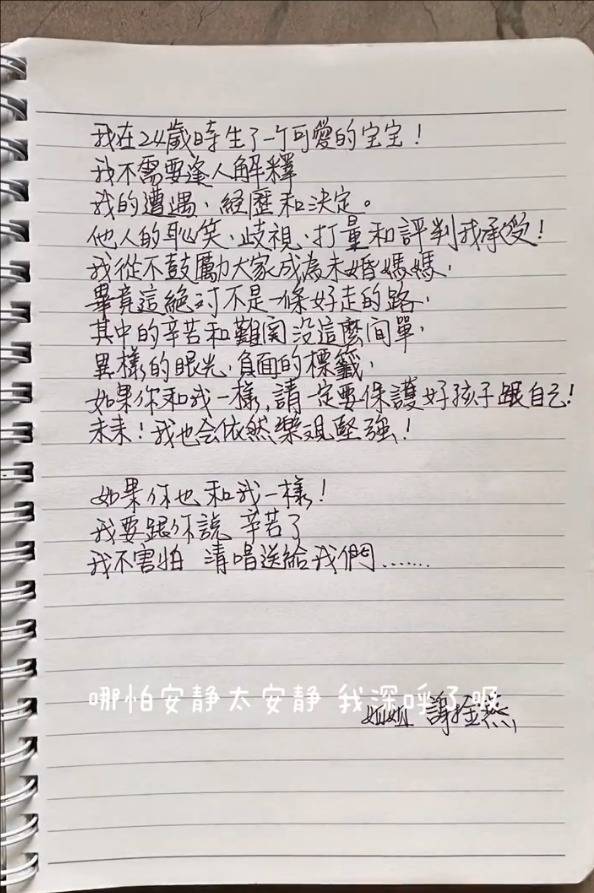 我在24歲時生了一个可愛的宝宝！
我不需要逢人解釋
我的遭遇、經歷和決定。
他人的恥笑、歧視、打量和評判我承受！
我從不鼓勵大家成為未婚媽媽，
畢竟這絕对不是一條好走的路，
其中的辛苦和難関没這麼简單，
異樣的眼光，負面的標籤，
如果你和我一樣，請一定要保護好孩子跟自己！
未来！我也会依然樂观堅强！
如果你也和我一樣！
我要跟你說 辛苦了
我不害怕 清唱送給我們……
哪怕安静太安静 我深呼了吸
妞妞 謝金燕